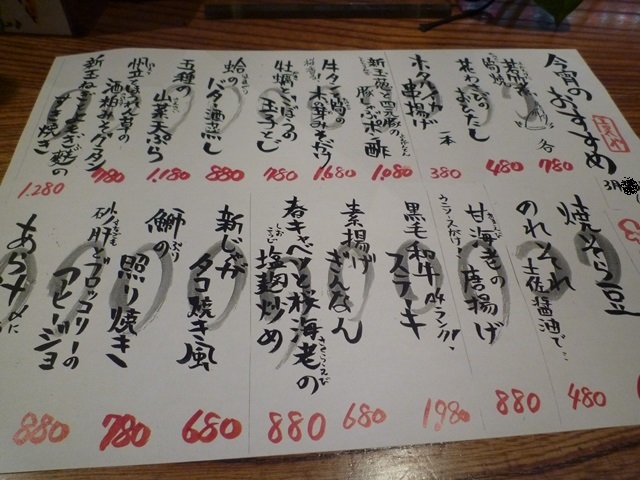 今宵のおすすめ
各
780
花わさびのおひたし
480
ホタルイカ串揚げ
一本
380
豚しゃぶポン酢
1,080
牛タンと
木の芽みそだれ
1,680
牡蠣とごぼうの
玉子とじ
780
蛤の
バター酒蒸し
880
五種の
山菜天ぷら
1,180
帆立とほうれん草の
酒粕みそグラタン
780
すき焼き
1,280
焼そら豆
480
のれそれ
土佐醤油で…
880
甘海老の唐揚げ
黒毛和牛
ステーキ
A4ランク!!
1980
素揚げ
ぎんなん
680
春キャベツと桜海老の
さくらえび
塩麹炒め
しおこうじ
880
新じゃが
タコ焼き風
680
鰤の
ぶり
照り焼き
780
砂肝とブロッコリーの
アヒージョ
880
あらカブに